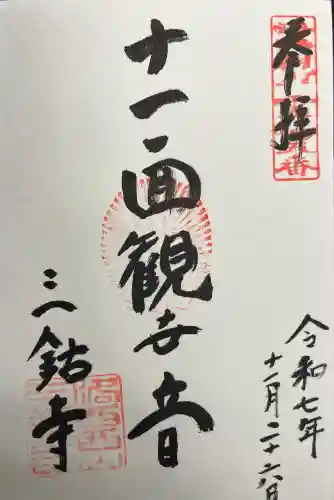 奉拝
令和七年
十一月二十六日
十一面観世音
三鈷寺